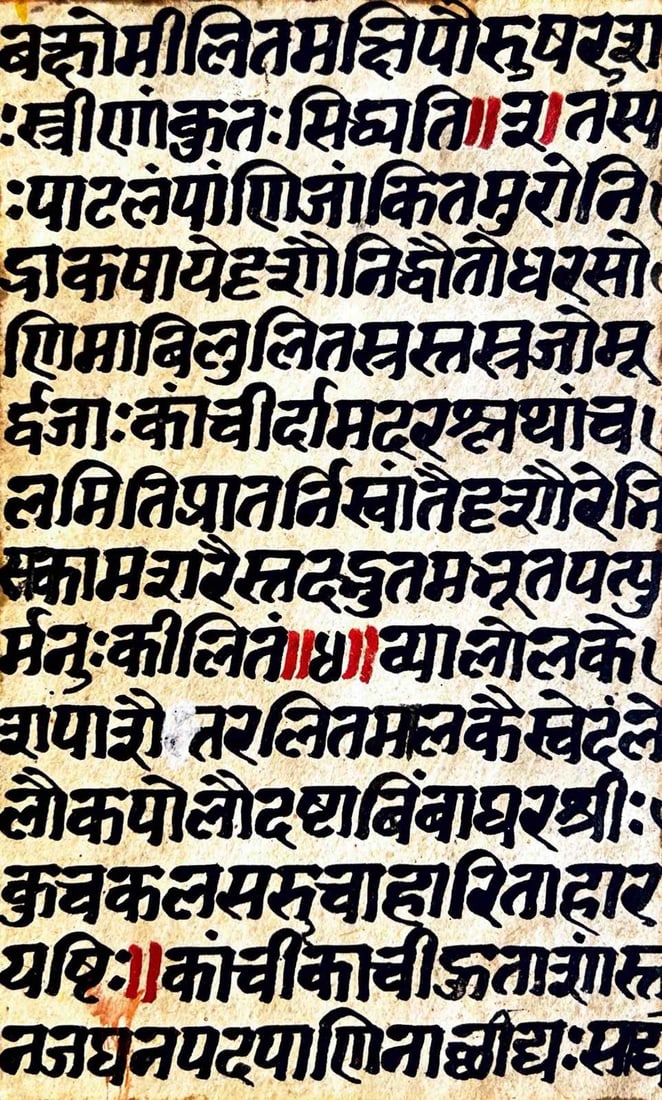 बक्षोमीलितमक्षिपौरुषरश
ःस्त्रीणांकुतःसिद्यति॥३।तस्य
ःपाटलंपांणिजांकितमुरोनि
द्राकषायेदृशौनिर्द्धौतोधरसो
णिमाबिलुलितस्रस्तस्रजोमू
र्द्वजाःकांचीर्दामदरश्लथांच
लमितिप्रातर्निखांतैदृशौरेनि
सकामशरैस्तदद्भुतमभूतपत्यु
र्मनुःकीलितं॥४॥व्यालोलके
शपाशौ तरलितमालकैस्वेदंले
लौकपोलौदष्टाबिंबाघरश्रीः
कुचकलसरुचाहारिताहार
यष्टिः॥कांचीकाचीद्गताशांस्त
नजघनपदपाणिनाच्छीद्यःसद्य